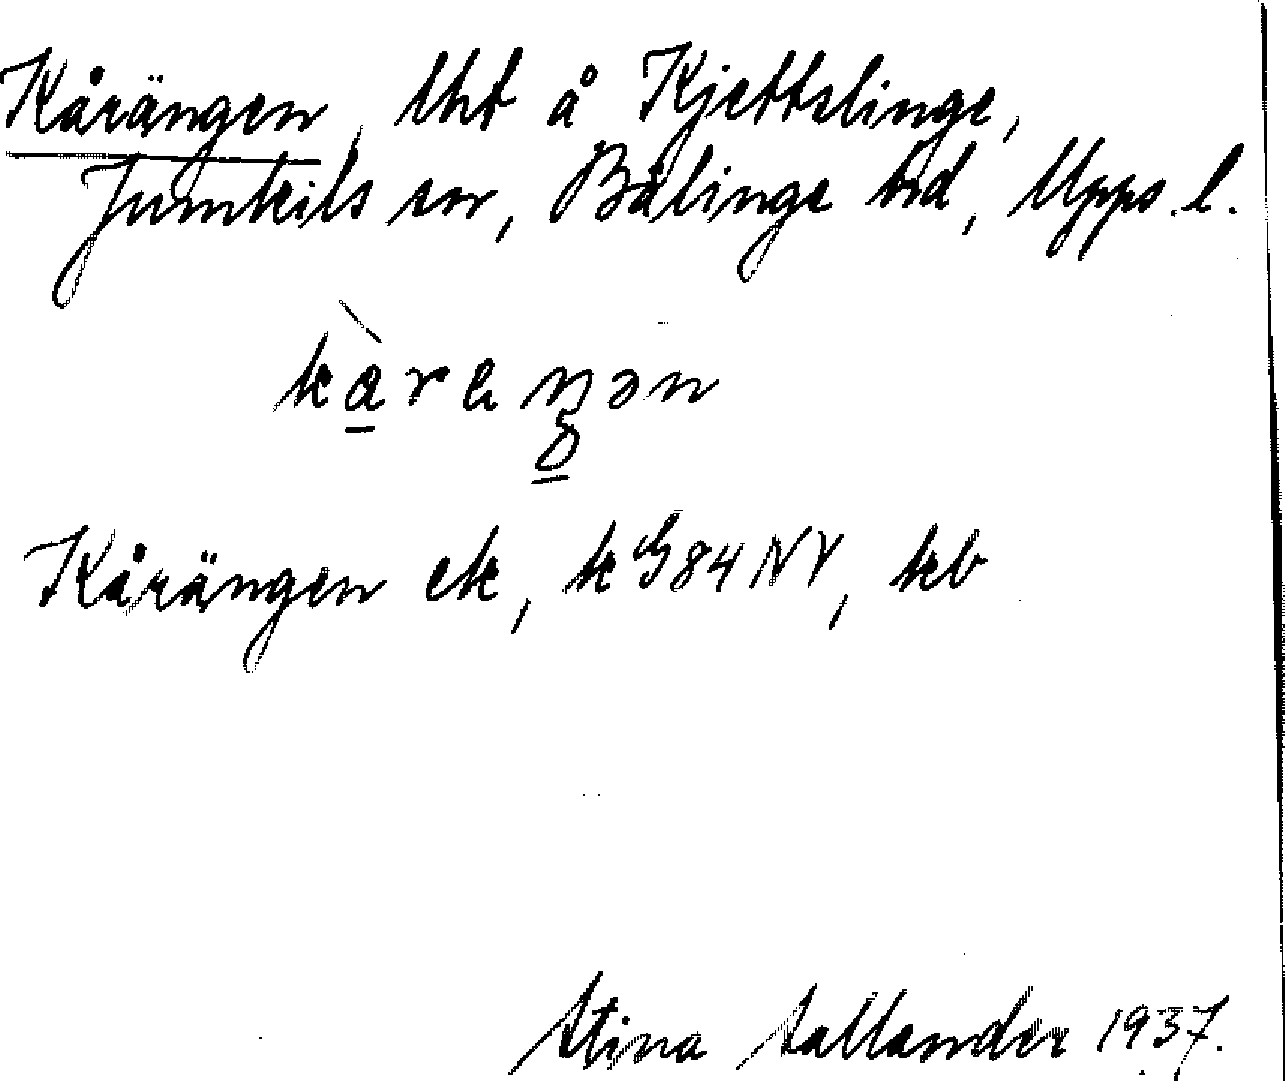 Kårängen, lht å Kjettslinge,
Jumkils sn, Bälinge hd, Upps. l.
Kårängen ek, k G84 NV, kb
Stina Sallander 1937.